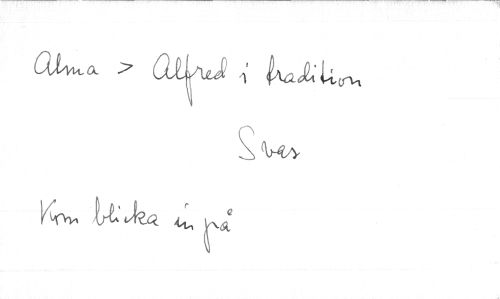 Alma > Alfred i tradition
Svar
Kom blicka in på